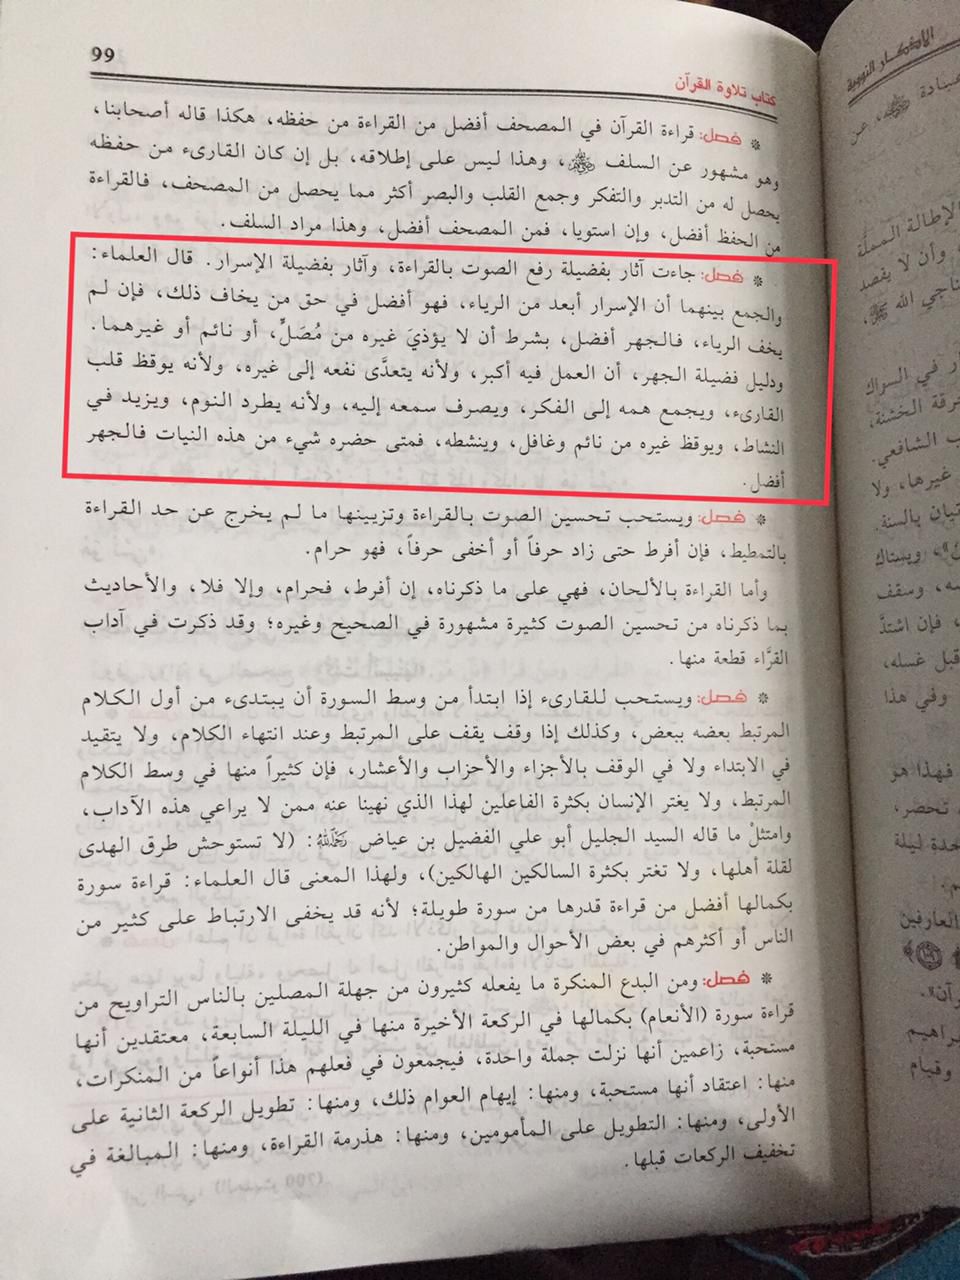 99
كتاب تلاوة القرآن
* فصل: قراءة القرآن في المصحف أفضل من القراءة من حفظه، هكذا قاله أصحابنا،
وهو مشهور عن السلف ﵃، وهذا ليس على إطلاقه، بل إن كان القارىء من حفظه
يحصل له من التدبر والتفكر وجمع القلب والبصر أكثر مما يحصل من المصحف، فالقراءة
من الحفظ أفضل، وإن استويا، فمن المصحف أفضل، وهذا مراد السلف.
* فصل: جاءت آثار بفضيلة رفع الصوت بالقراءة، وآثار بفضيلة الإسرار. قال العلماء:
والجمع بينهما أن الإسرار أبعد من الرياء، فهو أفضل في حق من يخاف ذلك، فإن لم
يخف الرياء، فالجهر أفضل، بشرط أن لا يؤذيَ غيره من مُصَلٍّ، أو نائم أو غيرهما.
ودليل فضيلة الجهر، أن العمل فيه أكبر، ولأنه يتعدَّى نفعه إلى غيره، ولأنه يوقظ قلب
القارىء، ويجمع همه إلى الفكر، ويصرف سمعه إليه، ولأنه يطرد النوم، ويزيد في
النشاط، ويوقظ غيره من نائم وغافل، وينشطه، فمتى حضره شيء من هذه النيات فالجهر
أفضل.
* فصل: ويستحب تحسين الصوت بالقراءة وتزيينها ما لم يخرج عن حد القراءة
بالتمطيط، فإن أفرط حتى زاد حرفاً أو أخفى حرفاً، فهو حرام.
وأما القراءة بالألحان، فهي على ما ذكرناه، إن أفرط، فحرام، وإلا فلا، والأحاديث
بما ذكرناه من تحسين الصوت كثيرة مشهورة في الصحيح وغيره؛ وقد ذكرت في آداب
القرَّاء قطعة منها.
* فصل: ويستحب للقارىء إذا ابتدأ من وسط السورة أن يبتدىء من أول الكلام
المرتبط بعضه ببعض، وكذلك إذا وقف يقف على المرتبط وعند انتهاء الكلام، ولا يتقيد
في الابتداء ولا في الوقف بالأجزاء والأحزاب والأعشار، فإن كثيراً منها في وسط الكلام
المرتبط، ولا يغتر الإنسان بكثرة الفاعلين لهذا الذي نهينا عنه ممن لا يراعي هذه الآداب،
وامتثلْ ما قاله السيد الجليل أبو علي الفضيل بن عياض ﵀: (لا تستوحش طرق الهدى
لقلة أهلها، ولا تغتر بكثرة السالكين الهالكين)، ولهذا المعنى قال العلماء: قراءة سورة
بكمالها أفضل من قراءة قدرها من سورة طويلة؛ لأنه قد يخفى الارتباط على كثير من
الناس أو أكثرهم في بعض الأحوال والمواطن.
* فصل: ومن البدع المنكرة ما يفعله كثيرون من جهلة المصلين بالناس التراويح من
قراءة سورة (الأنعام) بكمالها في الركعة الأخيرة منها في الليلة السابعة، معتقدين أنها
مستحبة، زاعمين أنها نزلت جملة واحدة، فيجمعون في فعلهم هذا أنواعاً من المنكرات،
منها: اعتقاد أنها مستحبة، ومنها: إيهام العوام ذلك، ومنها: تطويل الركعة الثانية على
الأولى، ومنها: التطويل على المأمومين، ومنها: هذرمة القراءة، ومنها: المبالغة في
تخفيف الركعات قبلها.